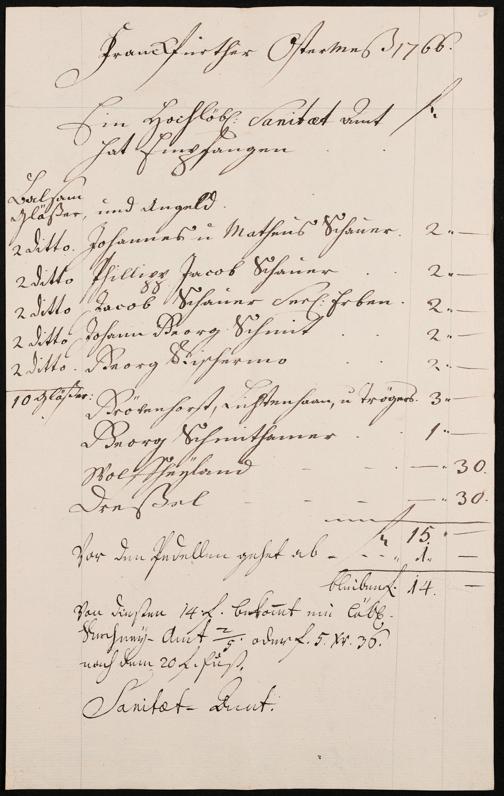 Franckfurther Ostermeß 1766.
Ein Hochlöbl: Sanitæt Amt f.
hat Empfangen
Balsam
Gläßer, und Angeld.
2 ditto. Johannes u Matheus Schauer. 2 „ —
2 ditto Phillipp Jacob Schauer 2 „ —
2 ditto Jacob Schauer Seel: Erben. 2 „ —
2 ditto Johann Georg Schmit 2 „ —
2 ditto. Georg 2 „ —
10 Gläßer:
Brötenhorst, Lichtenhaan, u Trögers. 3 „ —
Georg Schmithamer 1 „ —
Wolf — „ 30.
Dreßel — „ 30.
f. 15. „ —
Vor den Pedellen gehet ab — „ 1. —
bleiben f. 14. —
Von diesen 14 f. bekomt ein Löbl.
Amt 2/5 oder f. 5. Xr. 36.
nach dem 20 f. fuß.
Sanitæt- Amt.